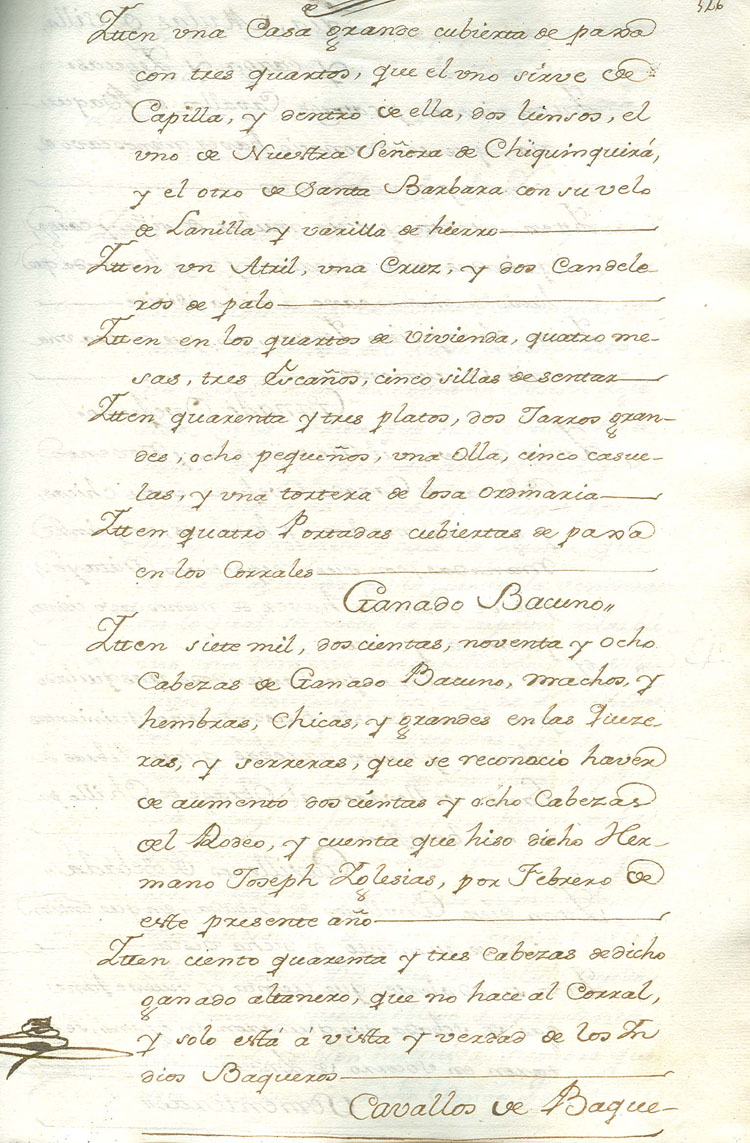 326
Itten vna Casa grande cubierta de paxa
con tres quartos, que el vno sirve de
Capilla, y dentro de ella, dos liensos, el
vno de Nuestra Señora de Chiquinquirá,
y el otro de Santa Barbara con su velo
de Lanilla y varilla de hierro
Itten vn Atril, vna Cruz, y dos Candele-
ros de palo
Itten en los quartos de vivienda, quatro me-
sas, tres Escaños, cinco sillas de sentar
Itten quarenta y tres platos, dos Tarros gran-
des, ocho pequeños, vna Olla, cinco casue-
las, y vna tortera de losa ordinaria
Itten quatro Portadas cubiertas de paxa
en los Corrales
Ganado Bacuno,,
Itten siete mil, doscientas, noventa y ocho
Cabezas de Ganado Bacuno, machos, y
hembras, chicas, y grandes en las
y serreras, que se reconocio haver
de aumento doscientas y ocho Cabezas
del Rodeo, y cuenta que hiso dicho Her-
mano Joseph Yglesias, por Febrero de
este presente año
Itten ciento quarenta y tres Cabezas de dicho
ganado altanero, que no hace al Corral,
y solo está á vista y verdad de los In
dios Baqueros
Cavallos de Baque-